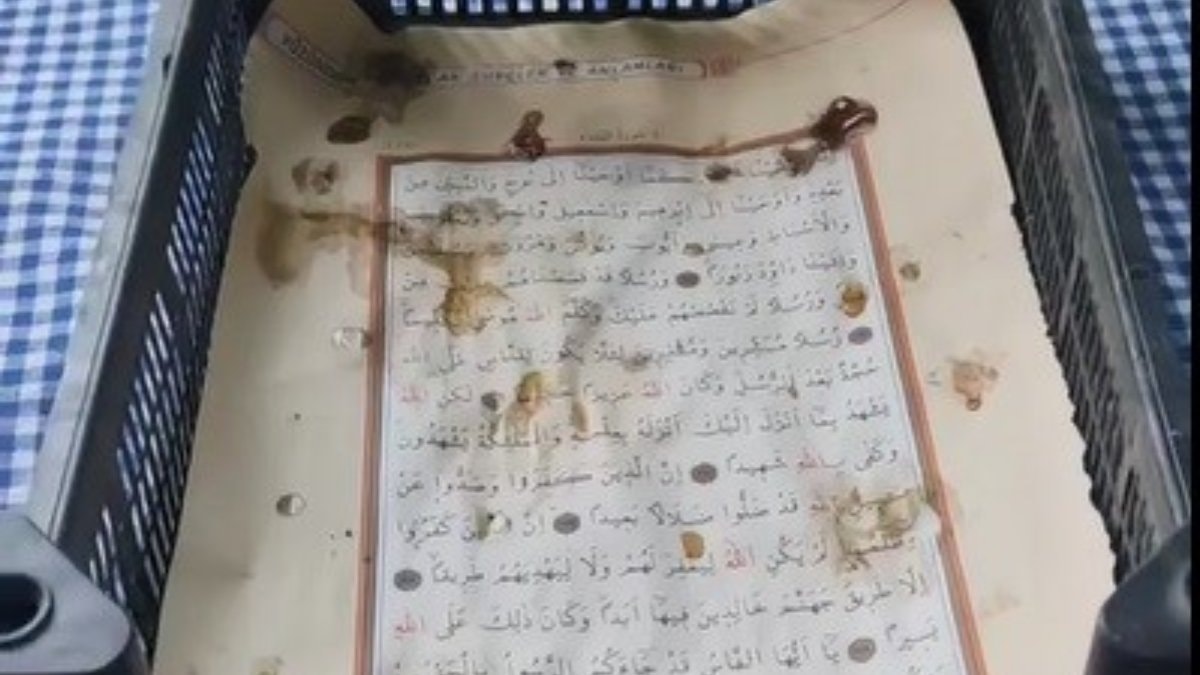 ANLAMLARI
كَمَٓا اَوْحَيْنَٓا اِلٰى نُوحٍ وَالنَّبِيّ۪نَ مِنْ
بَعْدِه۪ وَاَوْحَيْنَٓا اِلٰٓى اِبْرٰه۪يمَ وَاِسْمٰع۪يلَ وَاِسْحٰقَ
وَالْاَسْبَاطِ وَع۪يسٰى وَاَيُّوبَ وَيُونُسَ وَهٰرُونَ
وَاٰتَيْنَا دَاوُ۫دَ زَبُورًا وَرُسُلًا قَدْ قَصَصْنَاهُمْ مِنْ
وَرُسُلًا لَمْ نَقْصُصْهُمْ عَلَيْكَ وَكَلَّمَ اللّٰهُ مُوسٰى تَكْل۪يمًا
رُسُلًا مُبَشِّر۪ينَ وَمُنْذِر۪ينَ لِئَلَّا يَكُونَ لِلنَّاسِ عَلَى اللّٰهِ
حُجَّةٌ بَعْدَ الرُّسُلِ وَكَانَ اللّٰهُ عَز۪يزًا لٰكِنِ اللّٰهُ
يَشْهَدُ بِمَٓا اَنْزَلَ اِلَيْكَ اَنْزَلَهُ بِعِلْمِه۪ وَالْمَلٰٓئِكَةُ يَشْهَدُونَ
وَكَفٰى بِاللّٰهِ شَه۪يدًا اِنَّ الَّذ۪ينَ كَفَرُوا وَصَدُّوا عَنْ
اللّٰهِ قَدْ ضَلُّوا ضَلَالًا بَع۪يدًا اِنَّ الَّذ۪ينَ كَفَرُوا
لَمْ يَكُنِ اللّٰهُ لِيَغْفِرَ لَهُمْ وَلَا لِيَهْدِيَهُمْ طَر۪يقًا
اِلَّا طَر۪يقَ جَهَنَّمَ خَالِد۪ينَ ف۪يهَٓا اَبَدًا وَكَانَ ذٰلِكَ عَلَى اللّٰهِ
يَس۪يرًا يَٓا اَيُّهَا النَّاسُ قَدْ جَٓاءَكُمُ الرَّسُولُ بِالْحَقِّ